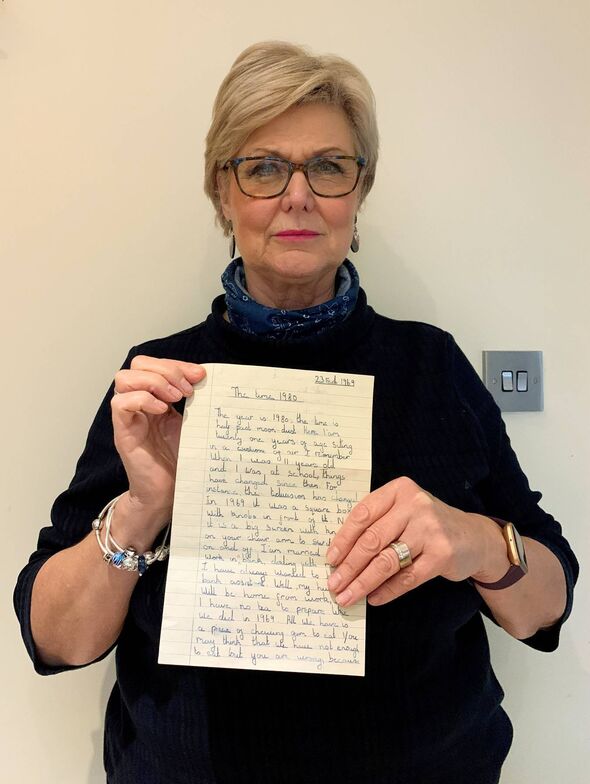 1969
The time 1980
The year is 1980, the time is
half past moon-dust. Here I am
twenty one years of age siting
in a of air. I remember
When I was 11 years old
and I was at school, things
have changed since then for
instance the has changed
In 1969 it was a square box
with knobs in front of it
it is a big screen with
on your chair arm to
on and off. I am married
work in bank
I have always wanted to
bank Well my
Will be home from work
I have no tea to prepare like
We did in 1969. All we have is
a peice of chewing gum to eat You
may think that we have not enough
to eat but you are wrong because